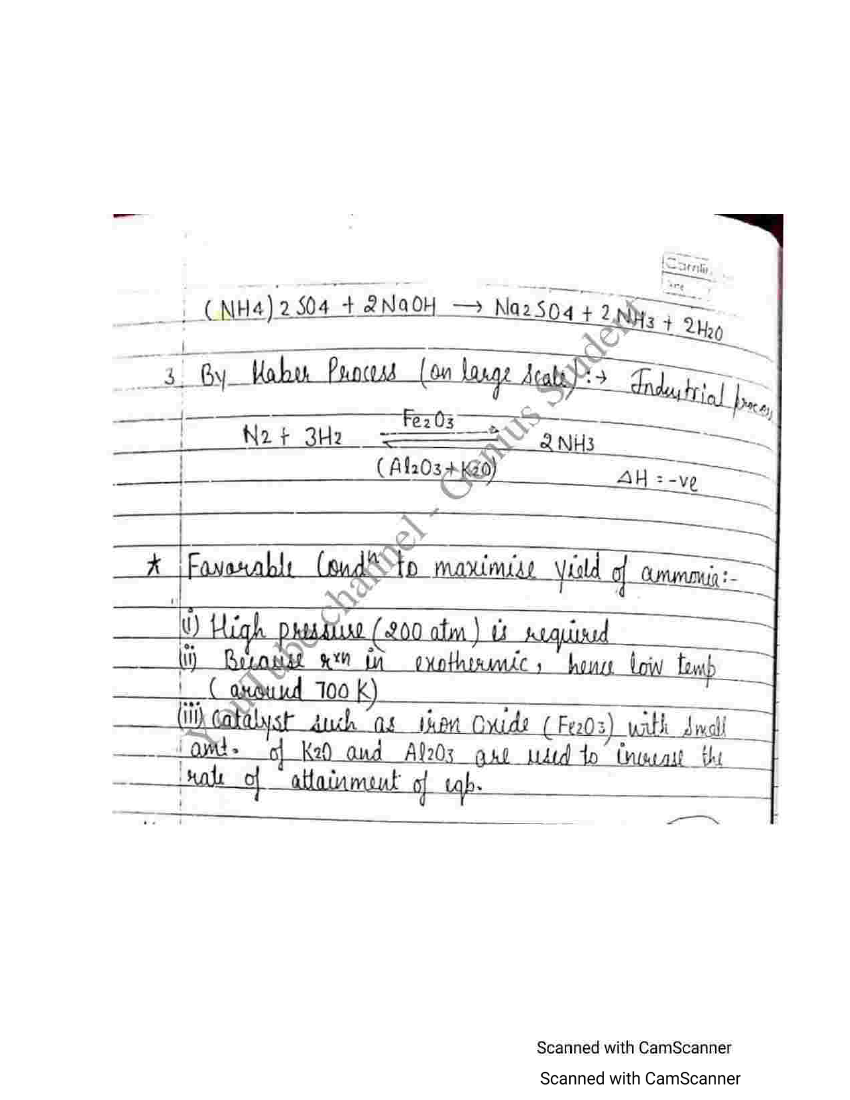 Camlin
(NH4)2SO4 + 2NaOH → Na2SO4 + 2NH3 + 2H2O
3 By Haber Process (on large scale) :→ Industrial process
Fe2O3
N2 + 3H2 ⇌ 2NH3
(Al2O3+K2O)
ΔH = -ve
* Favorable Condn to maximise yield of ammonia:-
(i) High pressure (200 atm) is required
(ii) Because rxn in exothermic, hence low temp
(around 700K)
(iii) Catalyst such as iron Oxide (Fe2O3) with small
amt. of K2O and Al2O3 are used to increase the
rate of attainment of eqb.
YouTube channel - Genius Student
Scanned with CamScanner
Scanned with CamScanner